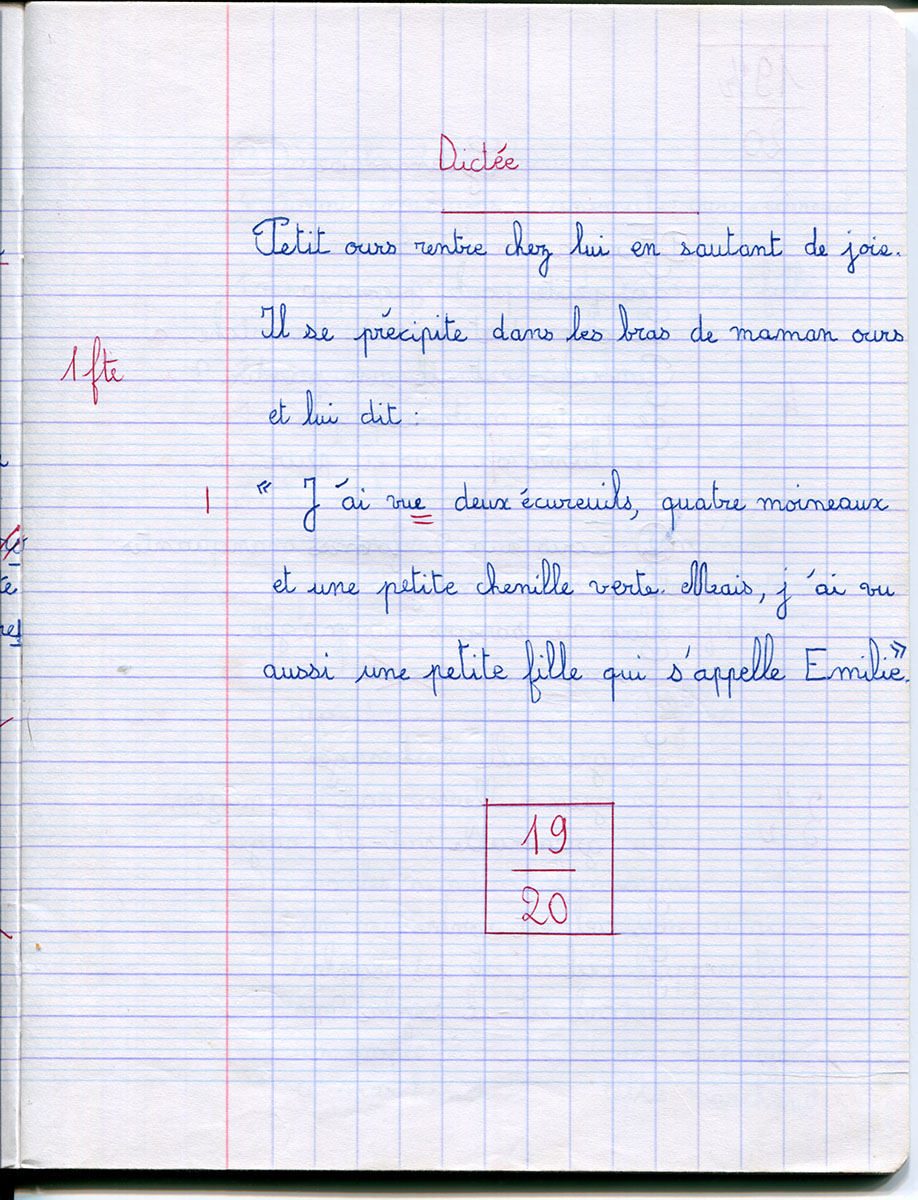 Dictée
Petit ours rentre chez lui en sautant de joie.
Il se précipite dans les bras de maman ours
1 fte
et lui dit :
1 « J'ai vue deux écureuils, quatre moineaux
et une petite chenille verte. Mais, j'ai vu
aussi une petite fille qui s'appelle Emilie ».
19
20